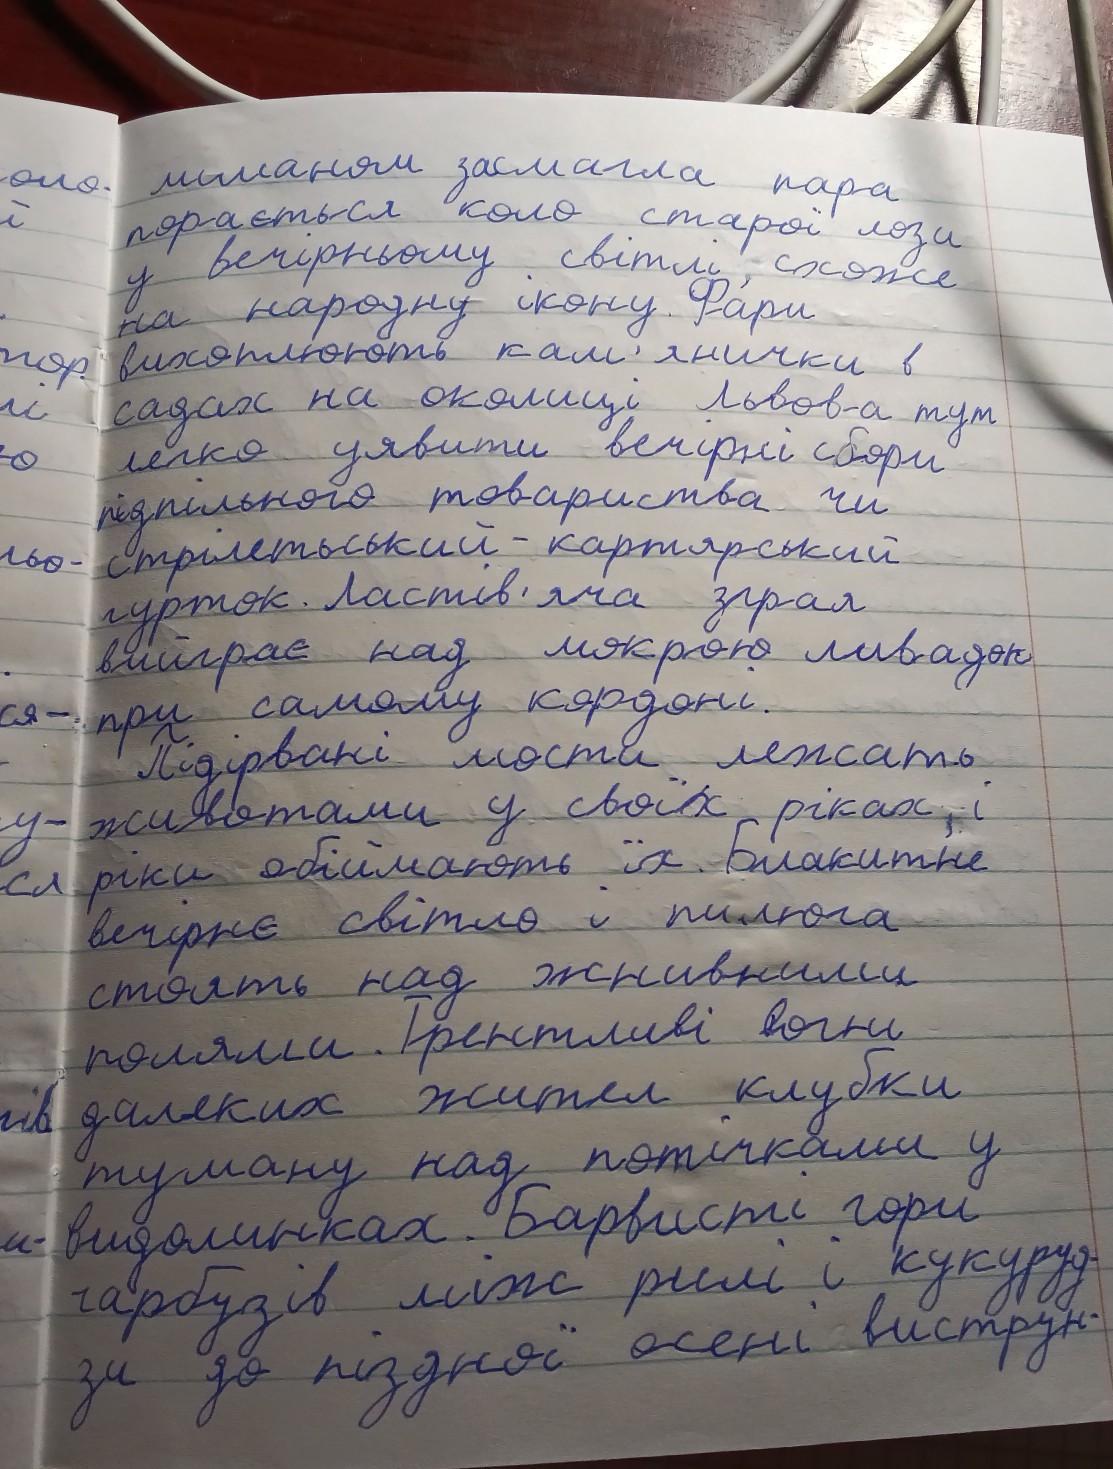 лиманом засмагла пара
порається коло старої лози
у вечірньому світлі, схоже
на народну ікону. Фари
вихоплюють кам'янички в
садах на околиці Львов-а тут
легко уявити вечірні сбори
підпільного товариства чи
стрілетьський-картярський
гурток. Ластів'яча зграя
вийграє над мокрою ливадок
при самому кордоні.
Підірвані мости лежать
животами у своїх ріках, і
ріки обіймають їх. Блакитне
вечірнє світло і пилюга
стоять над жнивними
полями. Трентливі вогни
далеких жител клубки
туману над потічками у
видолинках. Барвисті гори
гарбузів між рилі і кукуруд-
зи до піздної осені виструн-